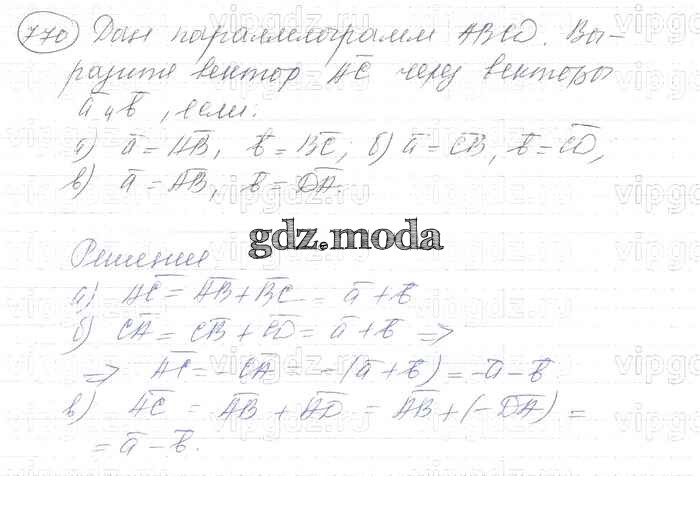 770 Дан параллелограмм ABCD. Вы-
разите вектор A̅C̅ через векторы
a̅ и b̅, если:
а) a̅ = A̅B̅, b̅ = B̅C̅; б) a̅ = C̅B̅, b̅ = C̅D̅;
в) a̅ = A̅B̅, b̅ = D̅A̅.
gdz.moda
Решение
а) A̅C̅ = A̅B̅ + B̅C̅ = a̅ + b̅
б) C̅A̅ = C̅B̅ + C̅D̅ = a̅ + b̅ ⇒
⇒ A̅C̅ = -C̅A̅ = -(a̅ + b̅) = -a̅ - b̅
в) A̅C̅ = A̅B̅ + A̅D̅ = A̅B̅ + (-D̅A̅) =
= a̅ - b̅.